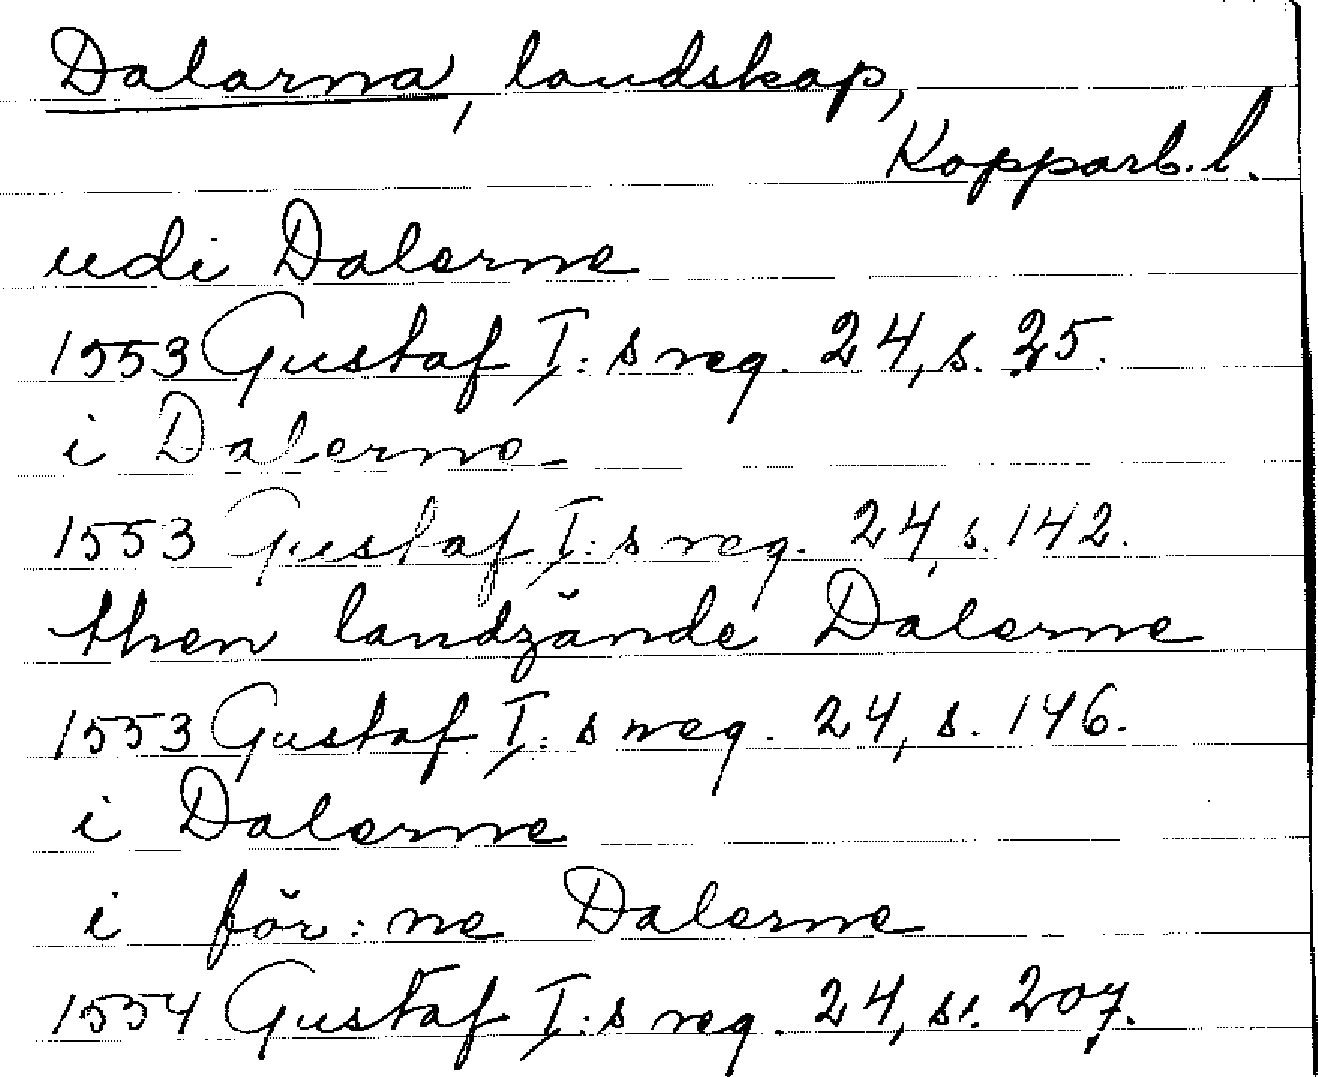 Dalarna, landskap,
Kopparb. l.
udi Dalerne
1553 Gustaf I:s reg. 24, s. 25.
i Dalerne
1553 Gustaf I:s reg. 24, s. 142.
then landzände Dalerne
1553 Gustaf I:s reg. 24, s. 146.
i Dalerne
i för:ne Dalerne
1554 Gustaf I:s reg. 24, s. 207.